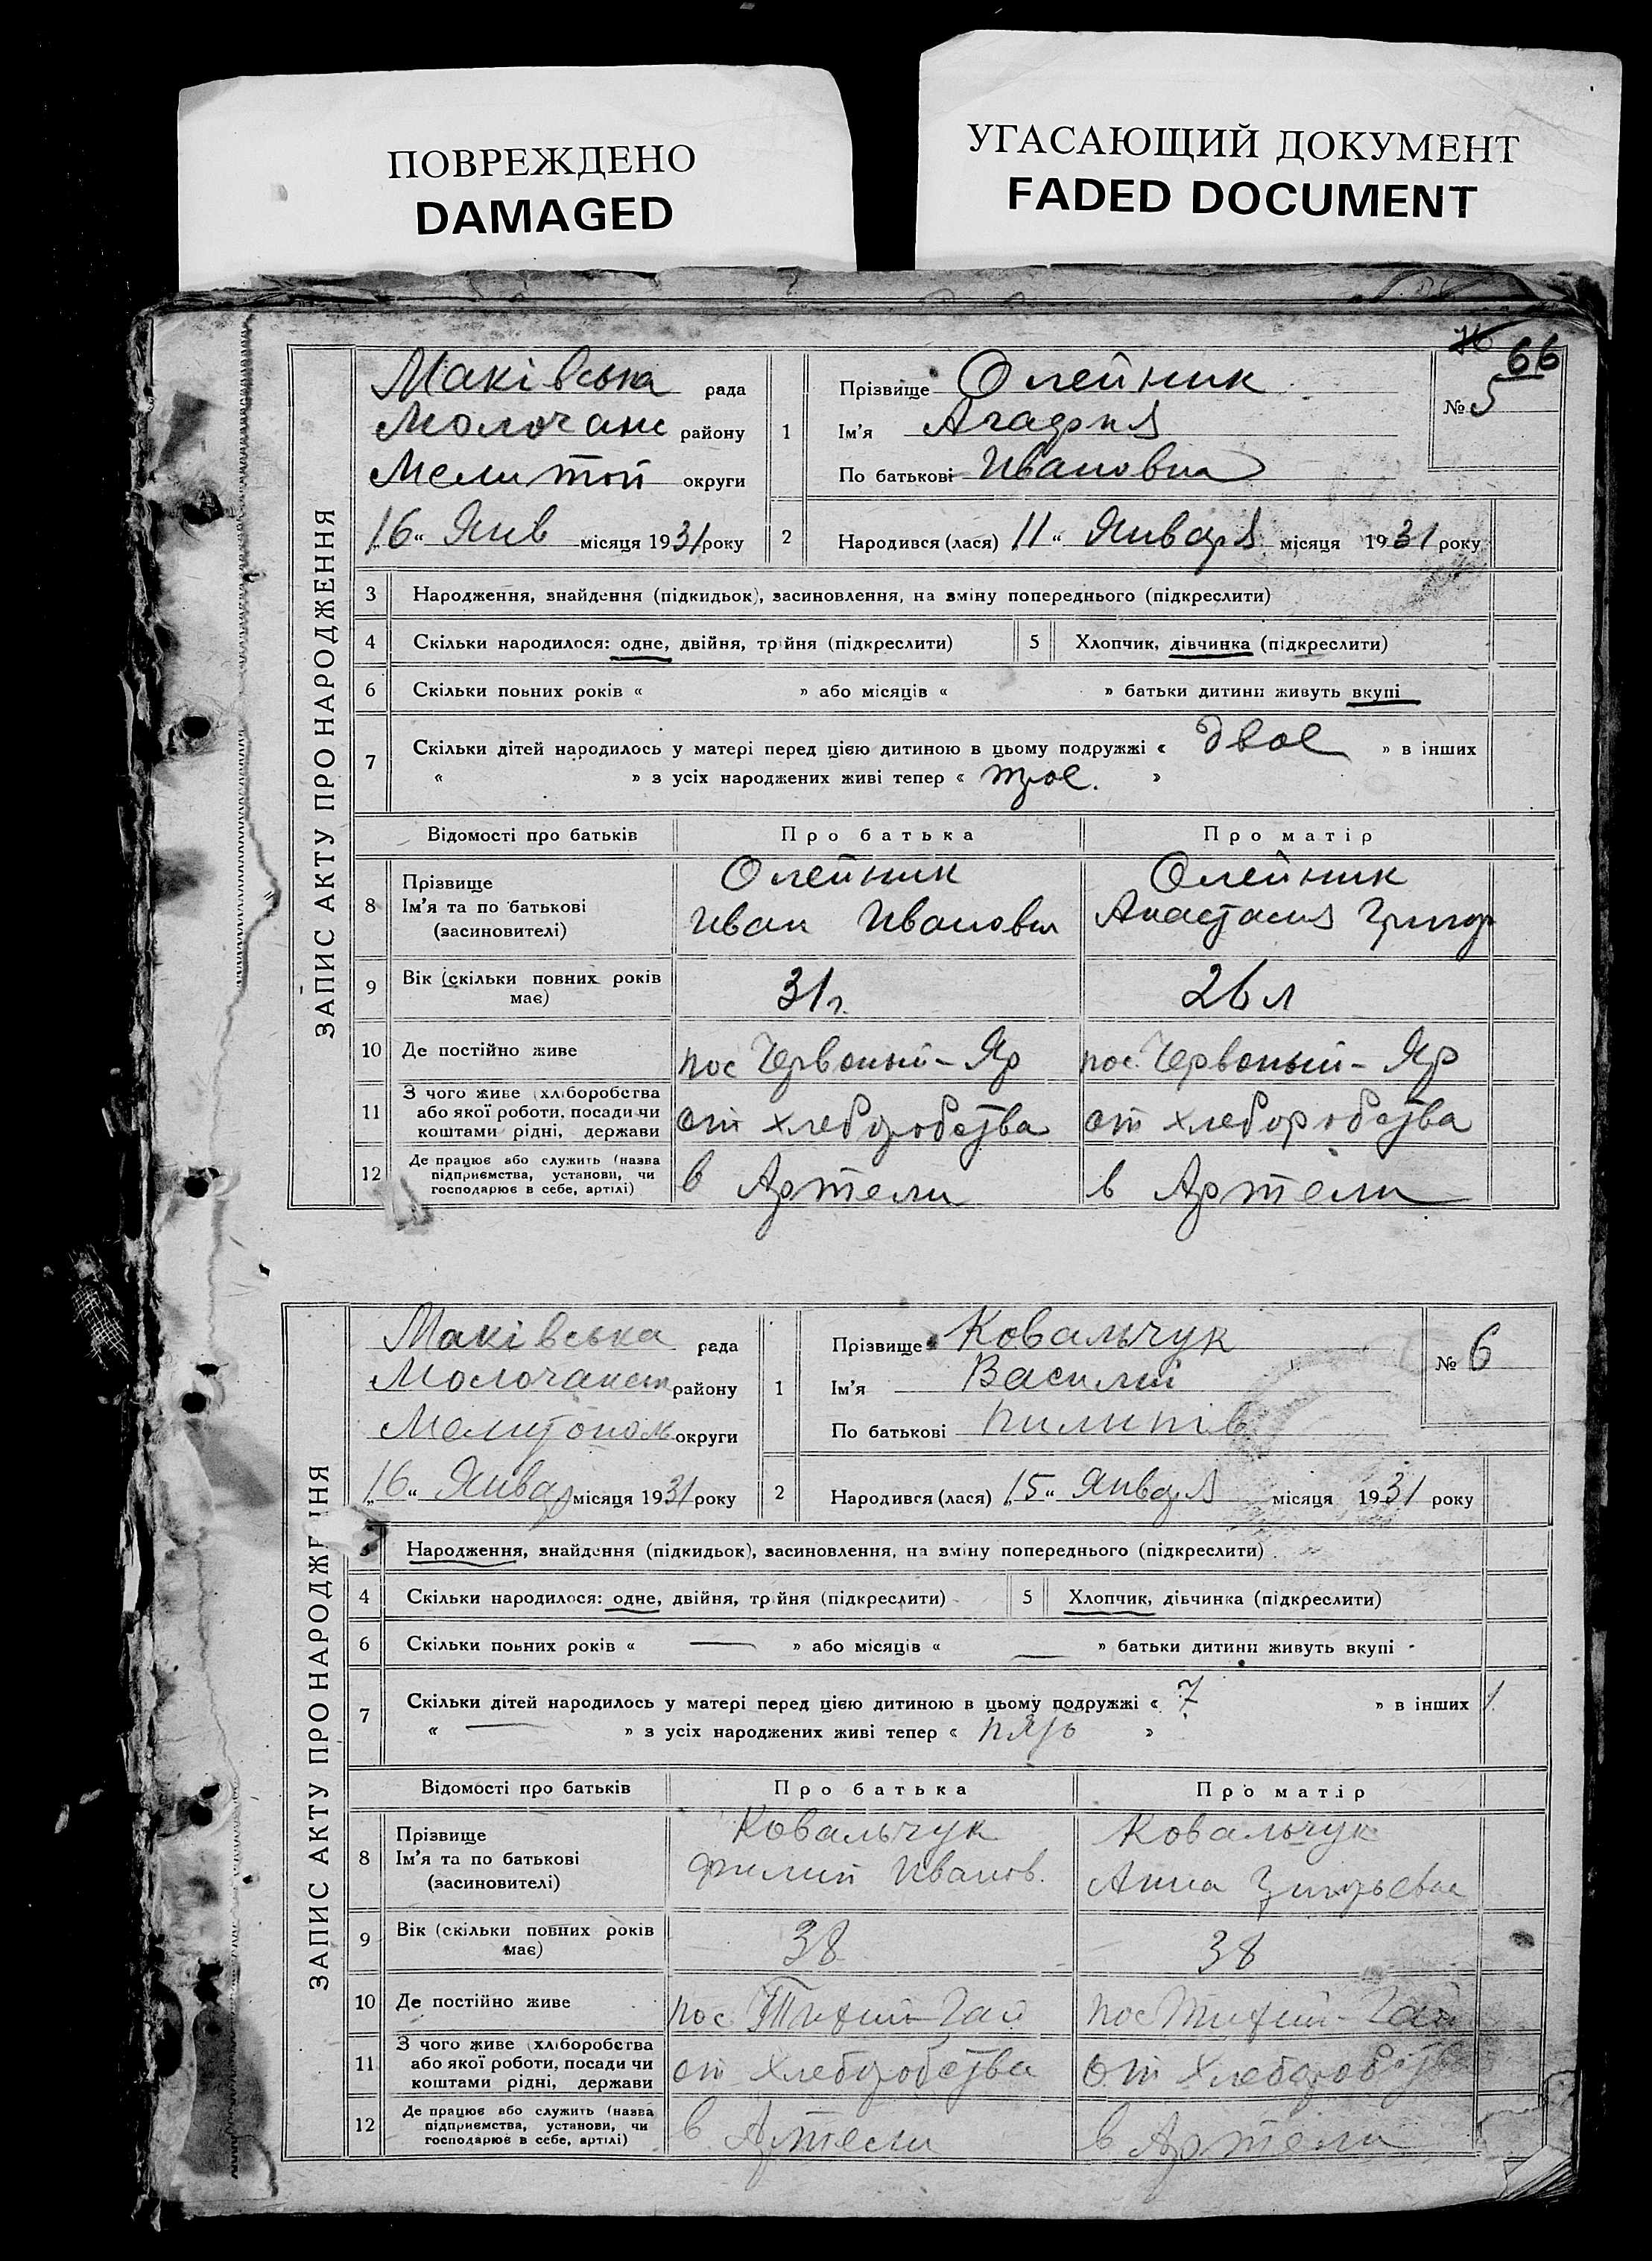 ПОВРЕЖДЕНО
DAMAGED
УГАСАЮЩИЙ ДОКУМЕНТ
FADED DOCUMENT
66
ЗАПИС АКТУ ПРО НАРОДЖЕННЯ
Маківська рада
Молочанс району
Мелитоп округи
„16“ Янв місяця 1931 року
1
Прізвище Олейник
Ім'я Агафия
По батькові Ивановна
№ 5
2
Народився (лася) 11 “ Января місяця 1931 року
3 Народження, знайдення (підкидьок), засиновлення, на зміну попереднього (підкреслити)
4 Скільки народилося: одне, двійня, трійня (підкреслити) 5 Хлопчик, дівчинка (підкреслити)
6 Скільки повних років « » або місяців « » батьки дитини живуть вкупі
7 Скільки дітей народилось у матері перед цією дитиною в цьому подружжі « двое » в інших
« » з усіх народжених живі тепер « трое. »
Відомості про батьків Про батька Про матір
8 Прізвище Ім'я та по батькові (засиновителі)
Олейник
Иван Иванович
Олейник
Анастасия Григор
9 Вік (скільки повних років має) 31 г. 26 л
10 Де постійно живе пос Червоный-Яр пос. Червоный-Яр
11 З чого живе (хліборобства або якої роботи, посади чи коштами рідні, держави
от хлеборобства от хлеборобства
12 Де працює або служить (назва підприємства, установи, чи господарює в себе, артілі)
в Артели в Артели
ЗАПИС АКТУ ПРО НАРОДЖЕ ННЯ
Маківська рада
Молочанст району
Мелитополь округи
„16“ Январ місяця 1931 року
1
Прізвище Ковальчук
Ім'я Василий
По батькові Пилипів
№ 6
2
Народився (лася) „15“ Января місяця 1931 року
Народження, знайдення (підкидьок), засиновлення, на зміну попереднього (підкреслити)
4 Скільки народилося: одне, двійня, трійня (підкреслити) 5 Хлопчик, дівчинка (підкреслити)
6 Скільки повних років « — » або місяців « — » батьки дитини живуть вкупі
7 Скільки дітей народилось у матері перед цією дитиною в цьому подружжі « 7 » в інших
« — » з усіх народжених живі тепер « пять »
Відомості про батьків Про батька Про матір
8 Прізвище Ім'я та по батькові (засиновителі)
Ковальчук
Филип Иванов.
Ковальчук
Анна Григорьевна
9 Вік (скільки повних років має) 38 38
10 Де постійно живе пос Тихий-Гай пос Тихий-Гай
11 З чого живе (хліборобства або якої роботи, посади чи коштами рідні, держави
от хлеборобства от хлеборобства
12 Де працює або служить (назва підприємства, установи, чи господарює в себе, артілі)
в Артели в Артели